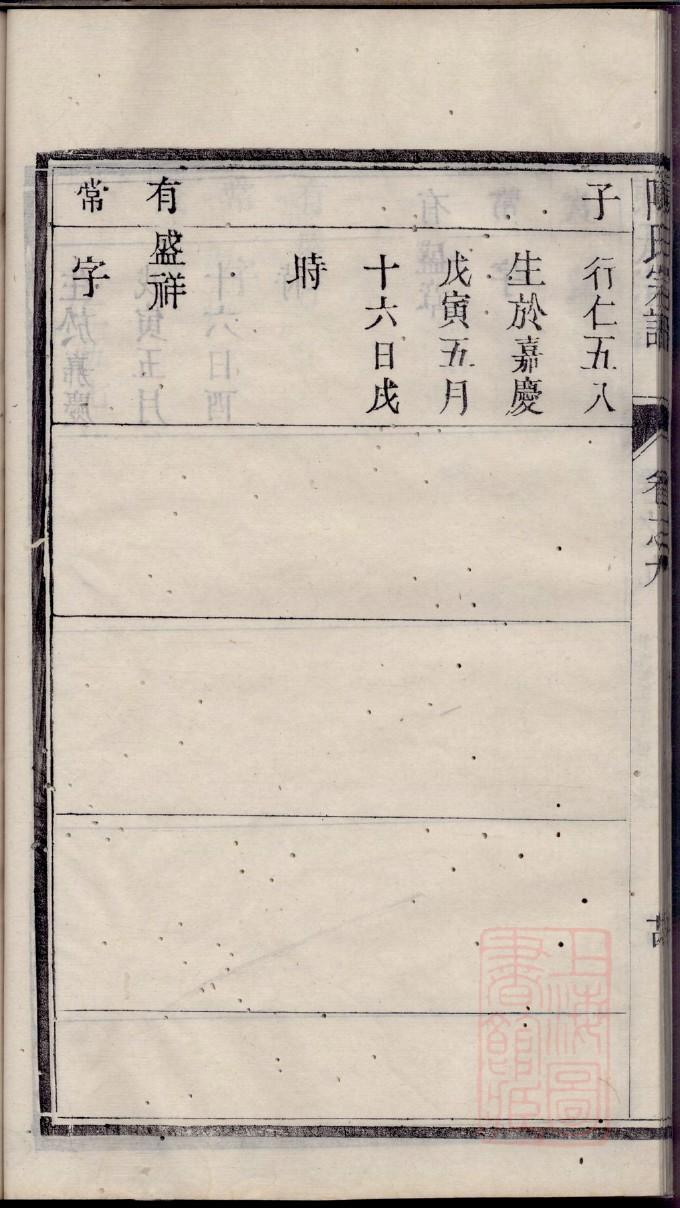 子 行仁五八
生於嘉慶
戊寅五月
十六日戌
時
有 盛祥
常 字
氏宗譜
卷之九
上海圖書館藏